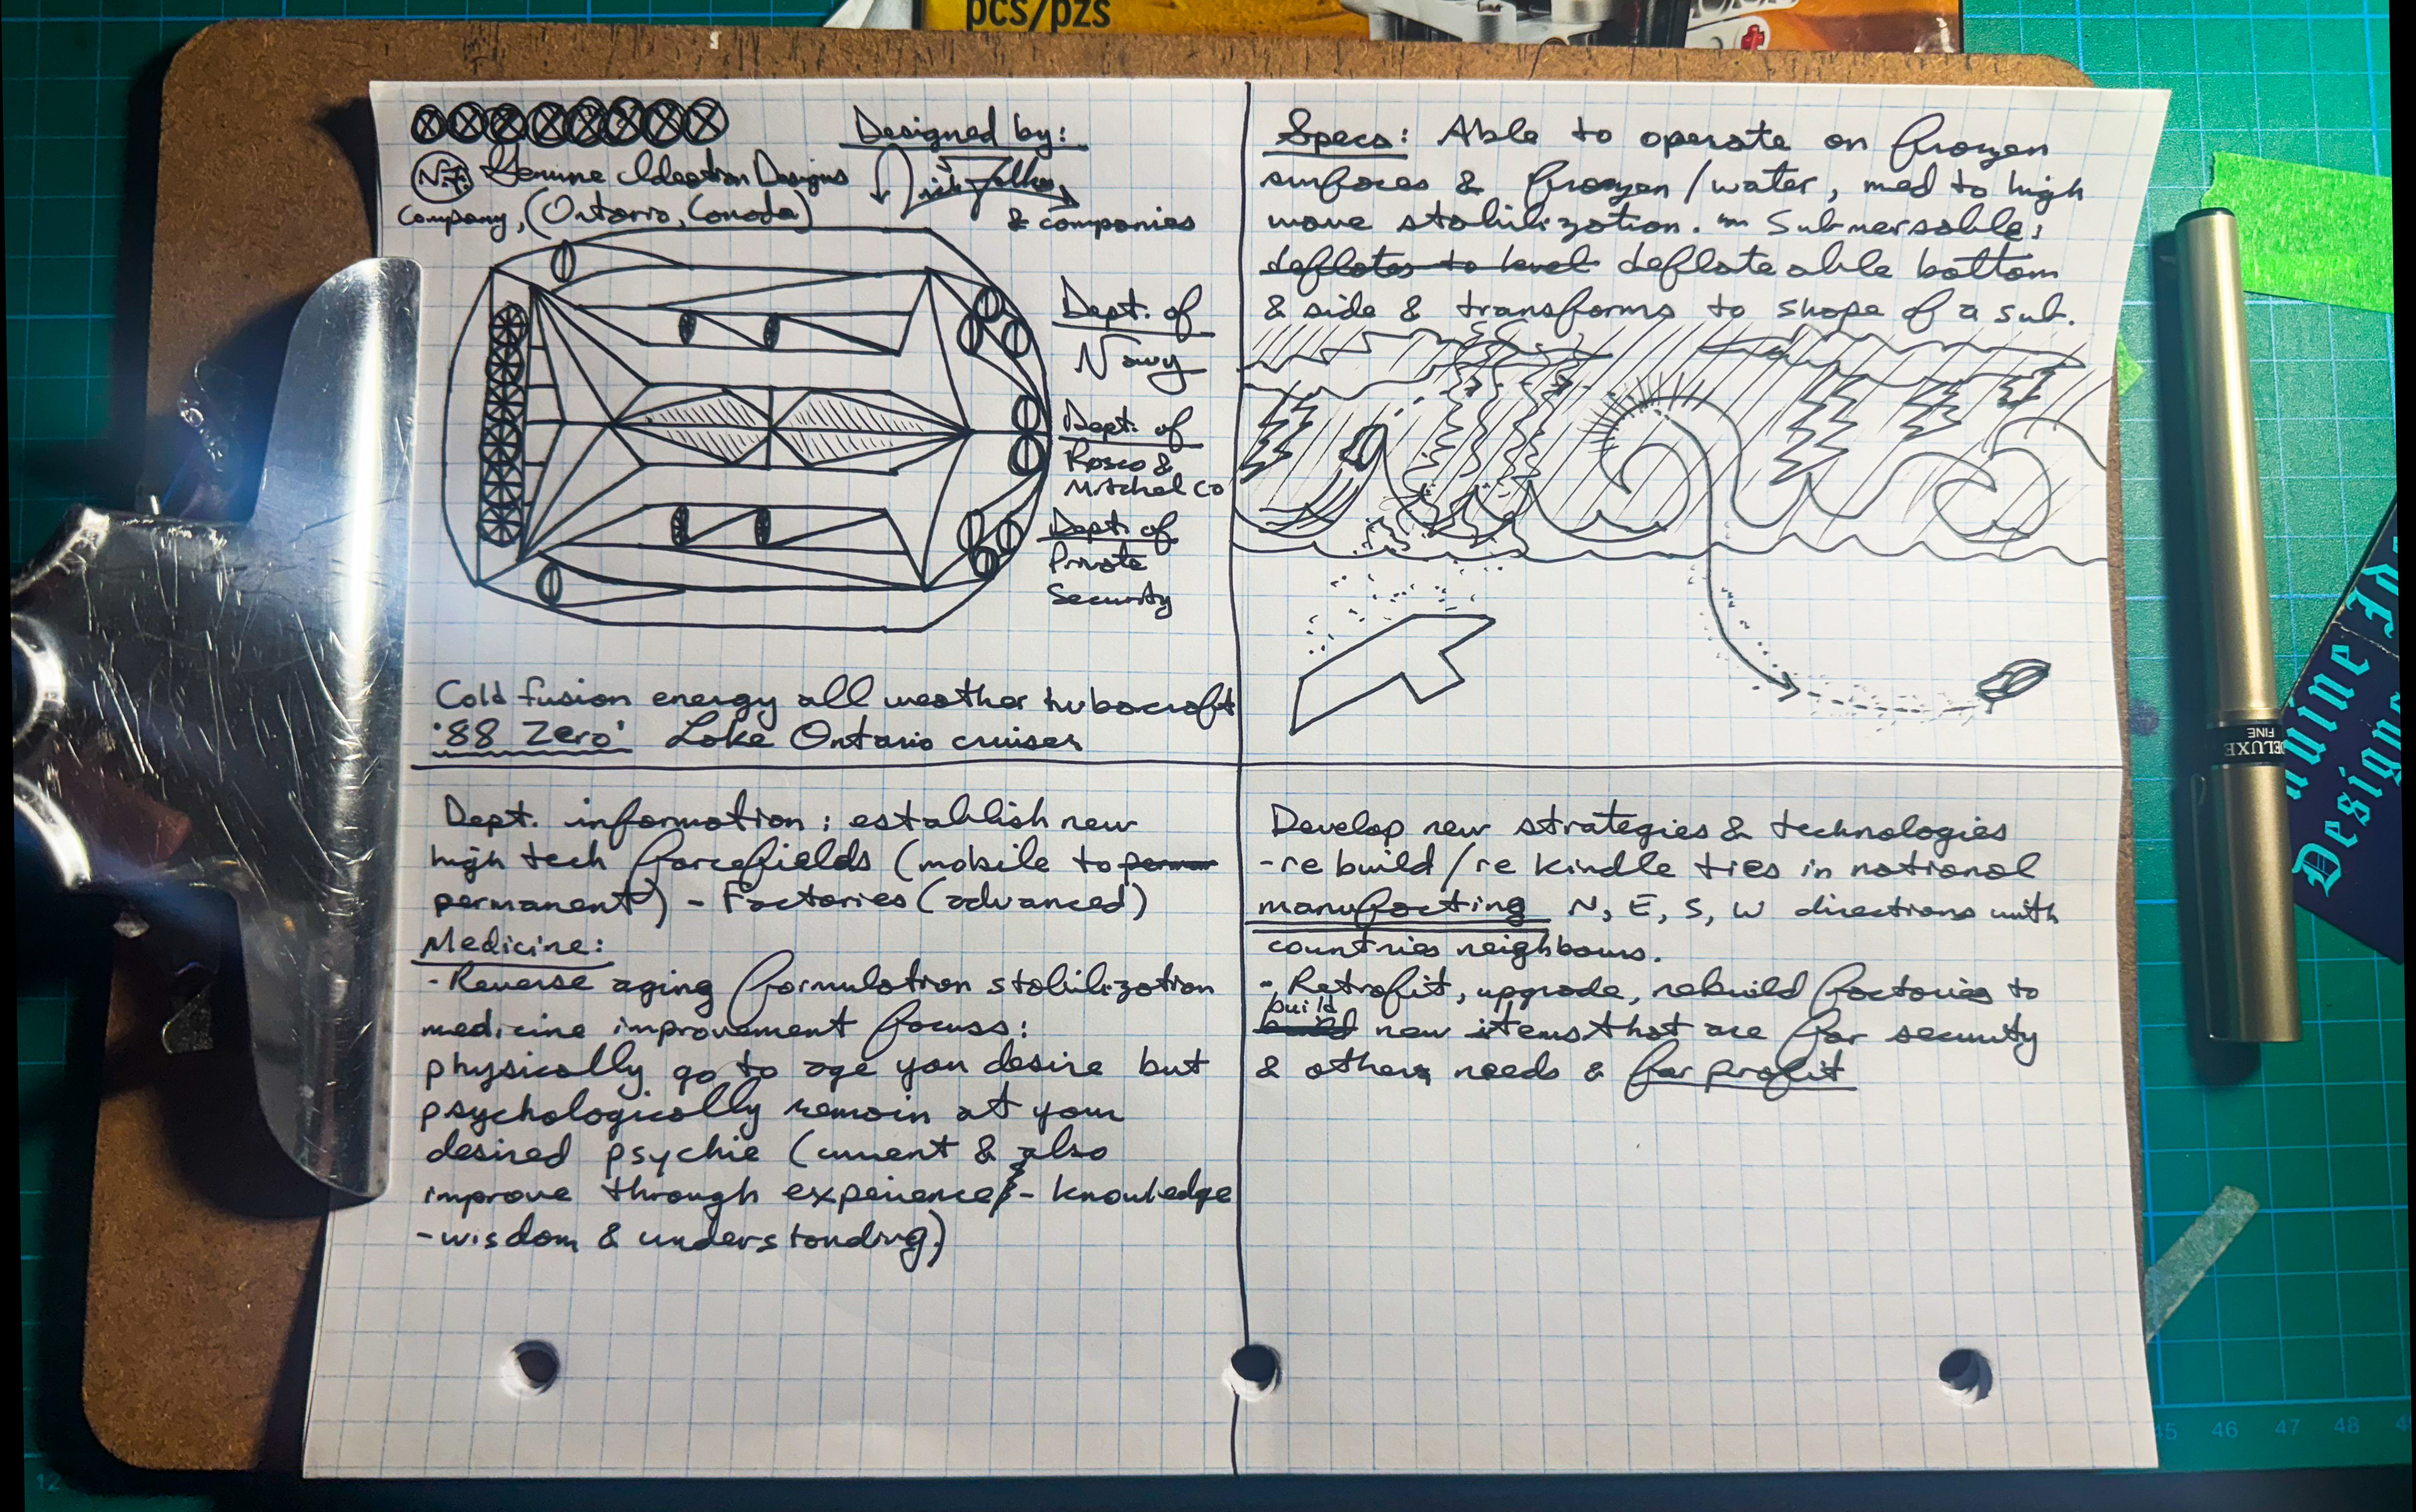 pcs/pzs
Designed by:
N.T. Genuine Ideation Designs
Company, (Ontario, Canada)
& companies
Dept. of
Navy
Dept. of
Rosco &
Mitchel Co
Dept. of
Private
Security
Cold fusion energy all weather tubocraft
'88 Zero' Lake Ontario cruiser
Specs: Able to operate on frozen
surfaces & frozen/water, med to high
wave stabilization. Submersable;
deflates to level deflateable bottom
& side & transforms to shape of a sub.
Dept. information; establish new
high tech forcefields (mobile to perman
permanent) - Factories (advanced)
Medicine:
- Reverse aging formulation stabilization
medicine improvement focuss:
physically go to age you desire but
psychologically remain at your
desired psychie (current & also
improve through experience - knowledge
- wisdom & understanding)
Develop new strategies & technologies
- re build/re kindle ties in national
manufacting N, E, S, W directions with
countries neighbours.
- Retrofit, upgrade, rebuild factories to
build
build new items that are for security
& others needs & for profit
DELUXE
FINE
uine Id
Design
45 46 47 48
12